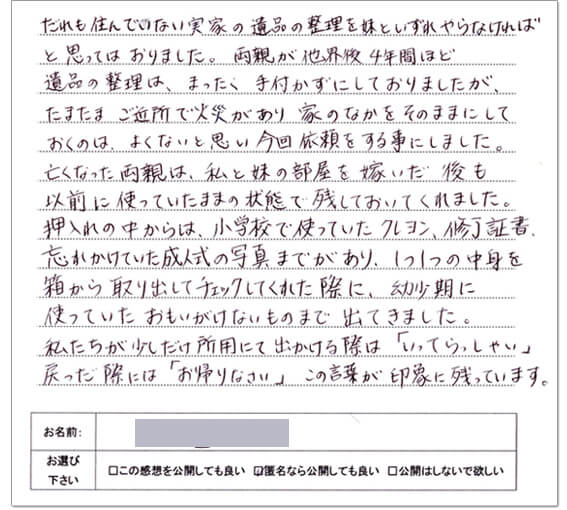 だれも住んでいない実家の遺品の整理を妹といずれやらなければ
と思ってはおりました。両親が他界後4年間ほど
遺品の整理は、まったく手付かずにしておりましたが、
たまたまご近所で火災があり家のなかをそのままにして
おくのは、よくないと思い今回依頼をする事にしました。
亡くなった両親は、私と妹の部屋を嫁いだ後も
以前に使っていたままの状態で残しておいてくれました。
押入れの中からは、小学校で使っていたクレヨン、修了証書、
忘れかけていた成人式の写真までがあり、1つ1つの中身を
箱から取り出してチェックしてくれた際に、幼少期に
使っていたおもいがけないものまで出てきました。
私たちが少しだけ所用にて出かける際は「いってらっしゃい」
戻った際には「お帰りなさい」この言葉が印象に残っています。
お名前:
お選び下さい □この感想を公開しても良い ☑匿名なら公開しても良い □公開はしないで欲しい